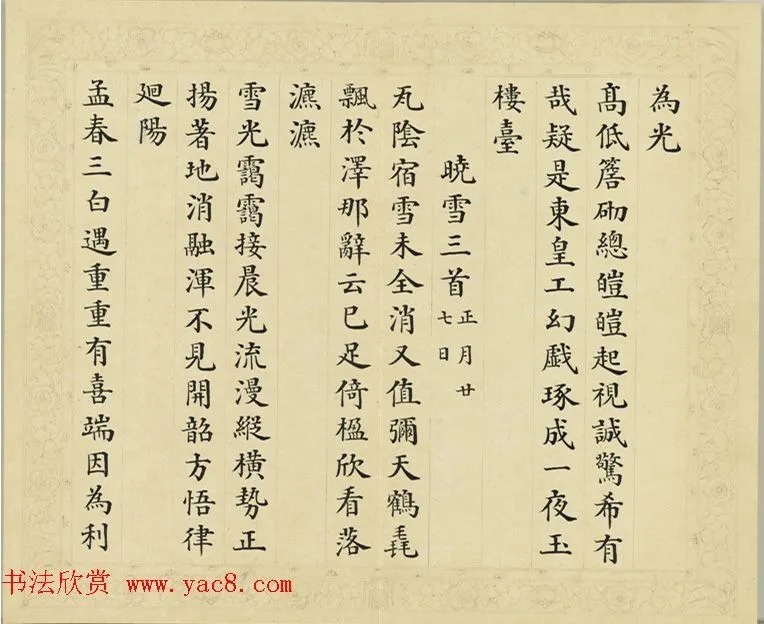 為光
髙低簷砌總皚皚起視誠驚希有
哉疑是東皇工幻戯琢成一夜玉
樓臺
曉雪三首 正月廿七日
瓦陰宿雪未全消又值彌天鶴毳
飄於澤那辭云已足倚楹欣看落
瀌瀌
雪光靄靄接晨光流漫縱橫勢正
揚著地消融渾不見開韶方悟律
廻陽
孟春三白遇重重有喜端因為利
书法欣赏 www.yac8.com